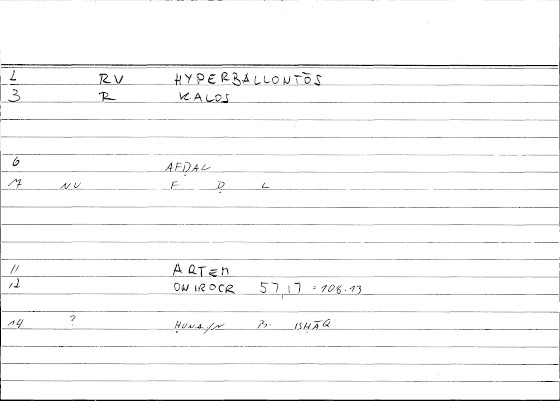 1 RV HYPERBALLONTŌS
3 R KALOS
6 AFḌAL
7 NV F Ḍ L
11 ARTEM
12 ONIROCR 57,17 = 108.13
14 ? ḤUNAJN B. ISḤĀQ